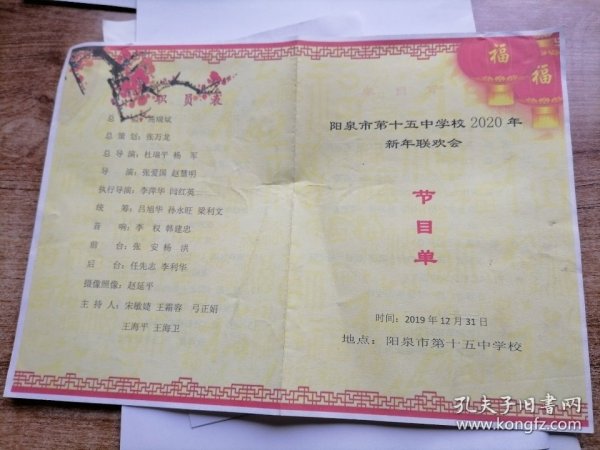 职员表
总策划：张万龙
总导演：杜瑞平 杨 军
导 演：张爱国 赵慧明
执行导演：李萍华 闫红英
统 筹：吕旭华 孙永旺 梁利文
音 响：李 权 韩建忠
前 台：张 安 杨 洪
后 台：任先志 李利华
摄像照像：赵延平
主 持 人：宋敏婕 王霜容 弓正娟
王海平 王海卫
福
福
阳泉市第十五中学校 2020 年
新年联欢会
节
目
单
时间：2019 年 12 月 31 日
地点：阳泉市第十五中学校
孔夫子旧书网
www.kongfz.com